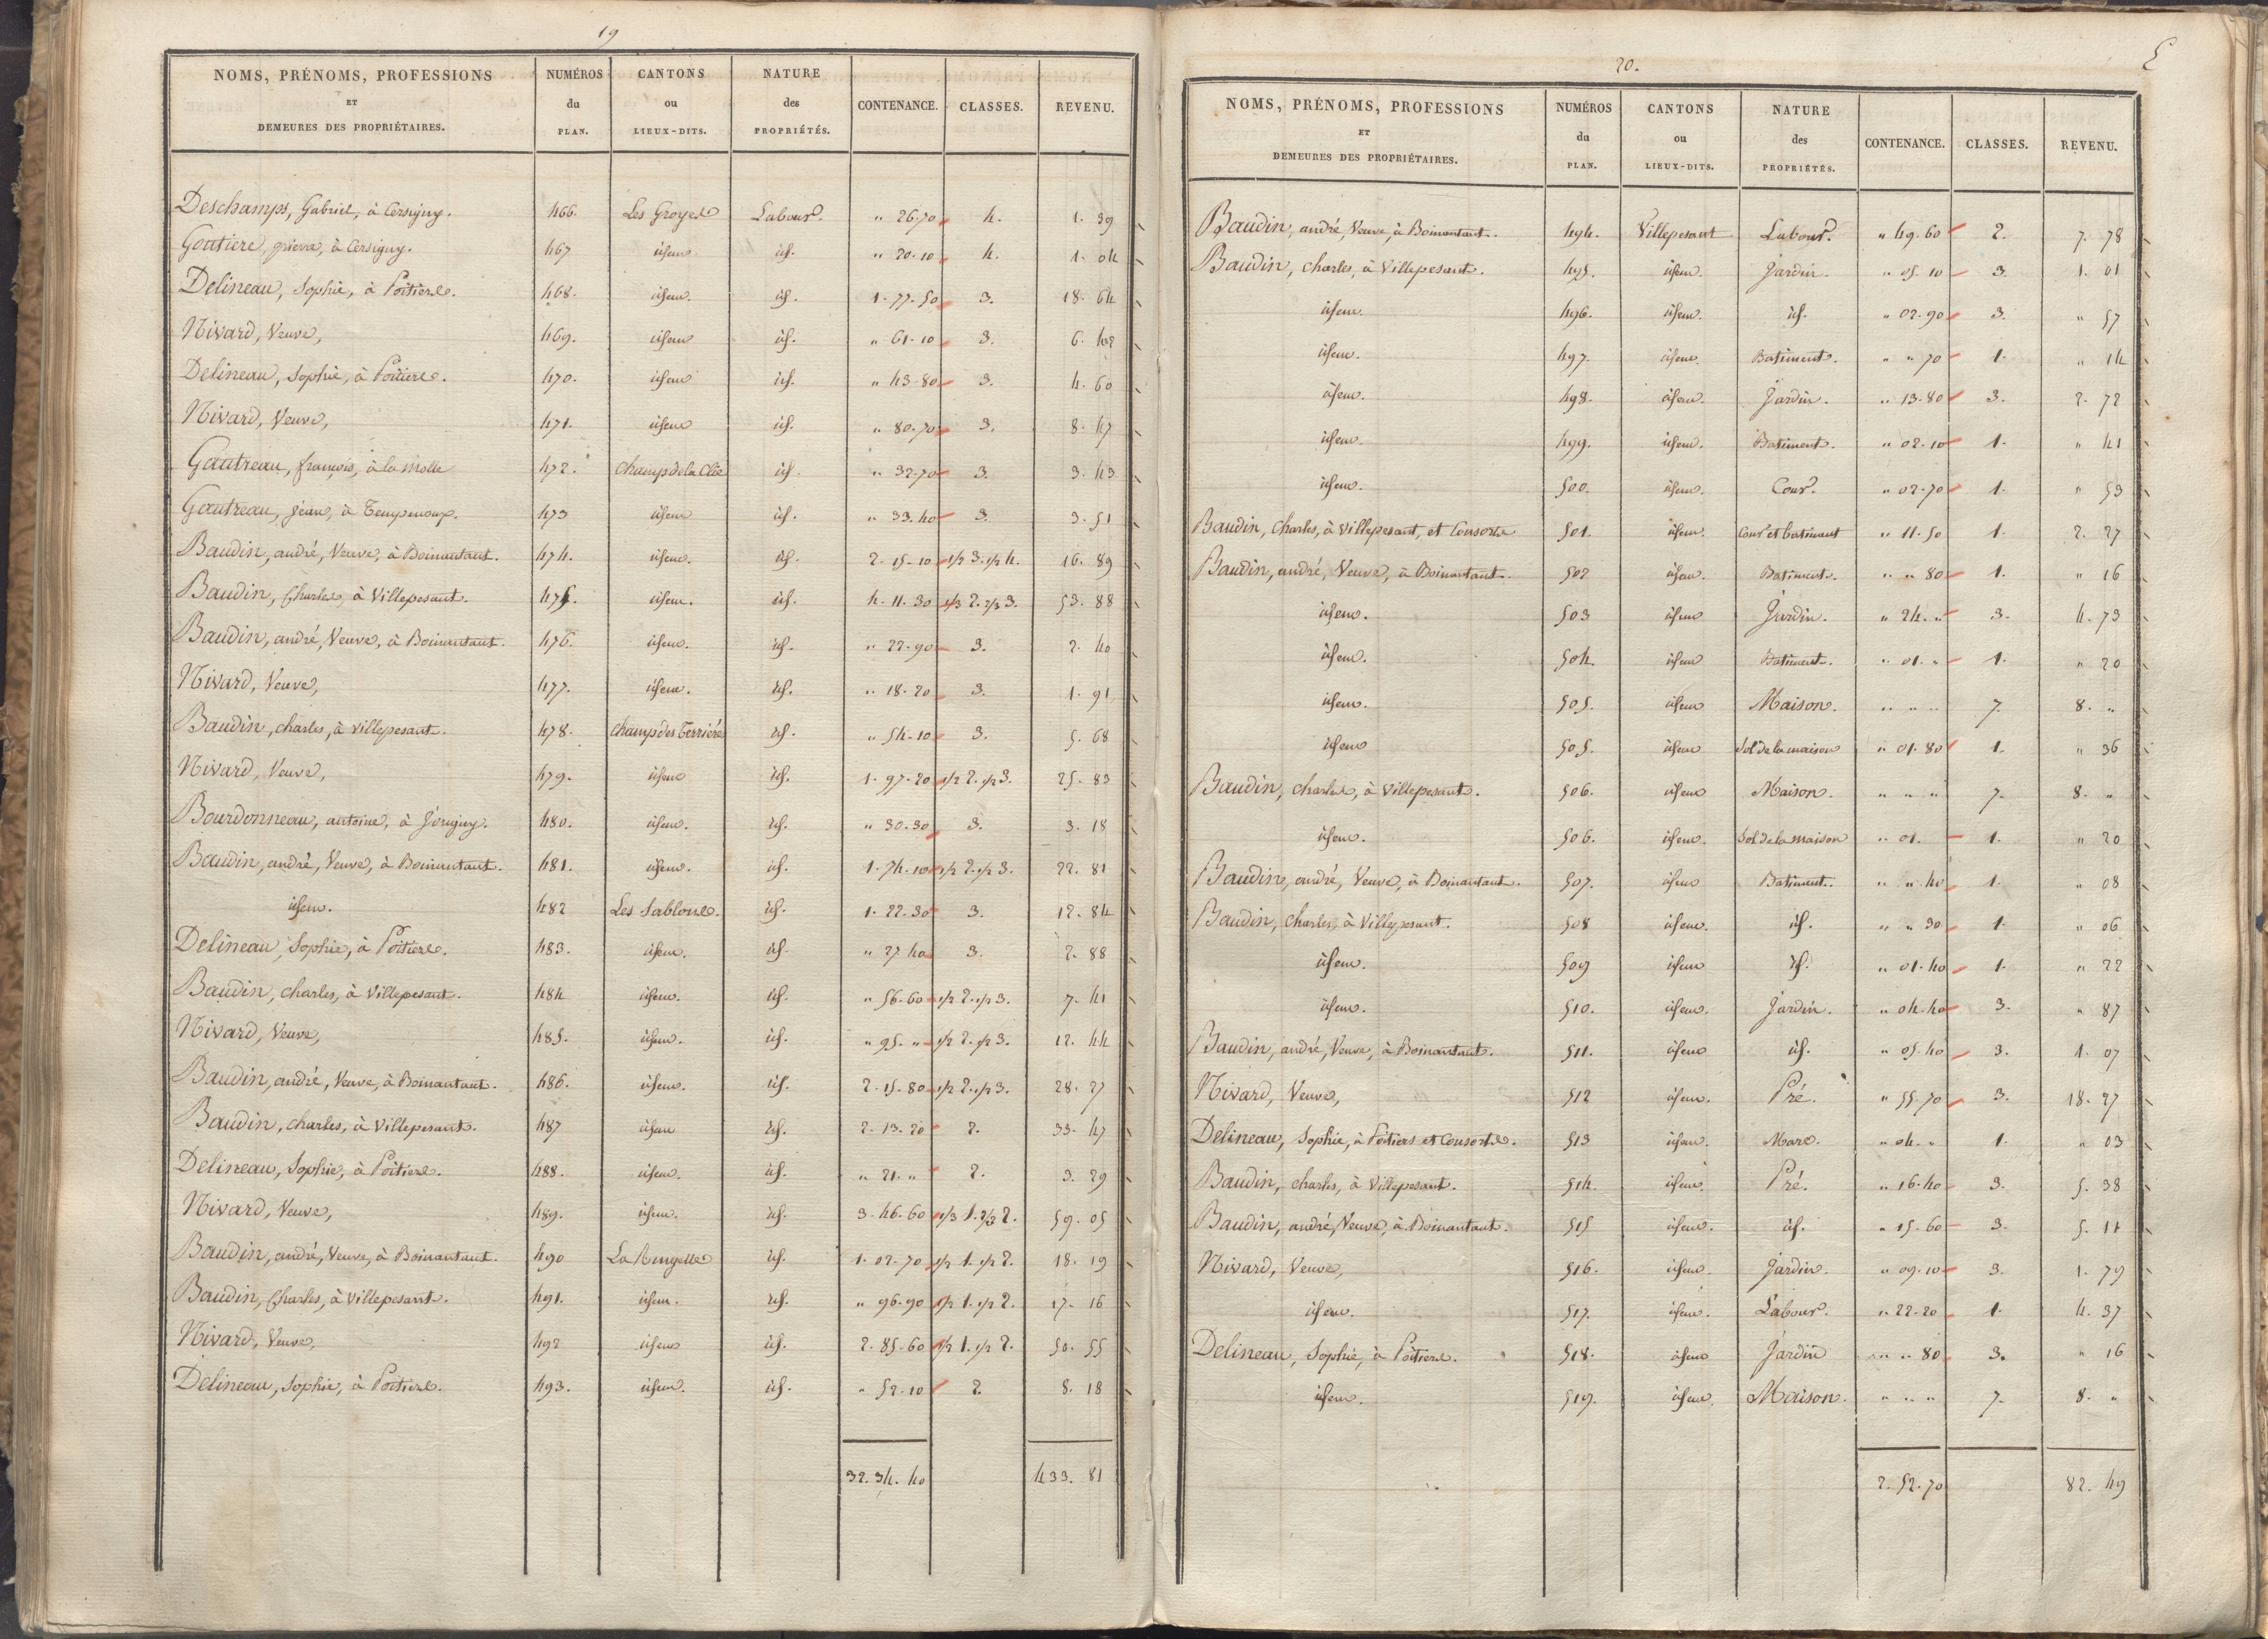 19
NOMS, PRÉNOMS, PROFESSIONS ET DEMEURES DES PROPRIÉTAIRES. NUMÉROS du PLAN. CANTONS ou LIEUX-DITS. NATURE des PROPRIÉTÉS. CONTENANCE. CLASSES. REVENU.
Deschamps, Gabriel, à Cersigny. 466. Les Groyes Labour. " 26-70 4. 1. 39
Goutiere, pierre, à Cersigny. 467 idem id. " 20-10 4. 1. 04
Delineau, Sophie, à Poitiers. 468. idem id. 1-77-50 3. 18. 64
Nivard, Veuve, 469. idem id. " 61-10 3. 6. 42
Delineau, Sophie, à Poitiers. 470. idem id. " 43-80 3. 4. 60
Nivard, Veuve, 471. idem id. " 80-70 3. 8. 47
Gautreau, françois, à la molle 472. Champ de la Clie id. " 32-70 3. 3. 43
Gautreau, jean, à 473 idem id. " 33.40 3. 3. 51
Baudin, andré, Veuve, à Boinantant. 474. idem. id. 2-15-10 1/2 3. 1/2 4. 16. 89
Baudin, Charles, à Villepesant. 475. idem. id. 4-11-30 1/3 2. 2/3 3. 53. 88
Baudin, andré, Veuve, à Boinantant. 476. idem. id. " 22-90 3. 2. 40
Nivard, Veuve, 477. idem. id. " 18-20 3. 1. 91
Baudin, charles, à villepesant. 478. champ des Terriére id. " 54-10 3. 5. 68
Nivard, Veuve, 479. idem id. 1-97-20 1/2 2. 1/2 3. 25. 83
Bourdonneau, antoine, à Jorigny. 480. idem. id. " 30-30 3. 3. 18
Baudin, andré, Veuve, à Boinantant. 481. idem. id. 1-74-10 1/2 2. 1/2 3. 22. 81
idem. 482 Les Sablons. id. 1-22-30 3. 12. 84
Delineau, Sophie, à Poitiers. 483. idem. id. " 27 40 3. 2. 88
Baudin, charles, à Villepesant. 484 idem. id. " 56-60 1/2 2. 1/2 3. 7. 41
Nivard, Veuve, 485. idem. id. " 95. " 1/2 2. 1/2 3. 12. 44
Baudin, andré, Veuve, à Boinantant. 486. idem. id. 2-15-80 1/2 2. 1/2 3. 28. 27
Baudin, charles, à Villepesant. 487 idem id. 2-13-20 2. 33. 47
Delineau, Sophie, à Poitiers. 488. idem. id. " 21. " 2. 3. 29
Nivard, Veuve, 489. idem. id. 3-46-60 1/3 1. 2/3 2. 59. 05
Baudin, andré, Veuve, à Boinantant. 490 La id. 1-02-70 1/2 1. 1/2 2. 18. 19
Baudin, Charles, à Villepesant. 491. idem. id. " 96-90 1/2 1. 1/2 2. 17. 16
Nivard, Veuve, 492 idem id. 2-85-60 1/2 1. 1/2 2. 50. 55
Delineau, Sophie, à Poitiers. 493. idem. id. " 52-10 2. 8. 18
32. 34. 40 433. 81
20.
NOMS, PRÉNOMS, PROFESSIONS ET DEMEURES DES PROPRIÉTAIRES. NUMÉROS du PLAN. CANTONS ou LIEUX-DITS. NATURE des PROPRIÉTÉS. CONTENANCE. CLASSES. REVENU.
Baudin, andré, Veuve, à Boinantant. 494. Villepesant Labour. " 49. 60 2. 7. 78
Baudin, charles, à Villepesant. 495. idem. Jardin. " 05 10 3. 1. 01
idem. 496. idem. id. " 02-90 3. " 57
idem. 497. idem. Batiment. " " 70 1. " 14
idem. 498. idem. Jardin. " 13-80 3. 2. 72
idem. 499. idem. Batiment. " 02-10 1. " 41
idem. 500. idem. Cour. " 02-70 1. " 53
Baudin, Charles, à Villepesant, et Consorts 501. idem. Cour et batiment " 11. 50 1. 2. 27
Baudin, andré, Veuve, à Boinantant. 502 idem. Batiment. " " 80 1. " 16
idem. 503 idem Jardin. " 24. " 3. 4. 73
idem. 504 idem Batiment. " 01. " 1. " 20
idem. 505. idem Maison. " " " 7. 8. "
idem 505. idem Sol de la maison " 01. 80 1. " 36
Baudin, charles, à Villepesant. 506. idem Maison. " " " 7. 8. "
idem. 506. idem. Sol de la maison " 01. 1. " 20
Baudin, andré, Veuve, à Boinantant. 507. idem Batiment. " " 40 1. " 08
Baudin, Charles, à Villepesant. 508 idem. id. " " 30 1. " 06
idem. 509 idem id. " 01-40 1. " 22
idem. 510. idem. Jardin. " 04-40 3. " 87
Baudin, andré, Veuve, à Boinantant. 511. idem id. " 05. 40 3. 1. 07
Nivard, Veuve, 512 idem. Pré. " 55. 70 3. 18. 27
Delineau, Sophie, à Poitiers et Consorts. 513 idem. Mare. " 04. " 1. " 03
Baudin, charles, à Villepesant. 514. idem. Pré. " 16-40 3. 5. 38
Baudin, andré, Veuve, à Boinantant. 515 idem. id. " 15-60 3. 5. 11
Nivard, Veuve, 516. idem. Jardin. " 09-10 3. 1. 79
idem. 517. idem. Labour. " 22-20 1. 4. 37
Delineau, Sophie, à Poitiers. 518. idem Jardin " " 80 3. " 16
idem. 519. idem. Maison. " " " 7. 8. "
2. 52. 70 82. 49